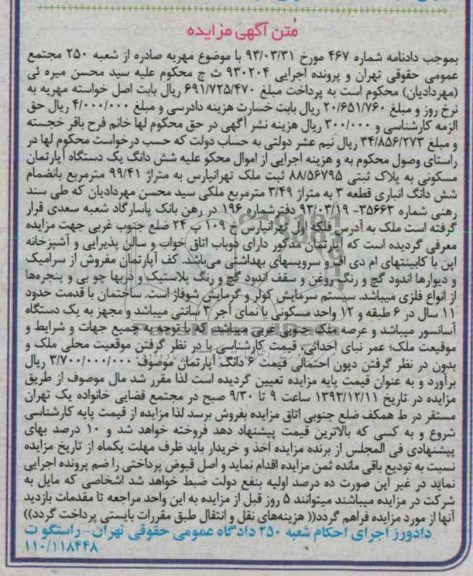 متن آگهی مزایده
بموجب دادنامه شماره ۴۶۷ مورخ ۹۳/۰۳/۳۱ با موضوع مهریه صادره از شعبه ۲۵۰ مجتمع
عمومی حقوقی تهران و پرونده اجرایی ۹۳۰۲۰۴ ث ج محکوم علیه سید محسن میره ئی
(مهردادیان) محکوم است به پرداخت مبلغ ۶۹۱/۷۲۵/۴۷۰ ریال بابت اصل خواسته مهریه به
نرخ روز و مبلغ ۲۰/۶۵۱/۷۶۰ ریال بابت خسارت هزینه دادرسی و مبلغ ۴/۰۰۰/۰۰۰ ریال حق
الزمه کارشناسی و ۳۰۰/۰۰۰ ریال هزینه نشر آگهی در حق محکوم لها خانم فرح باقر خجسته
و مبلغ ۳۴/۸۵۶/۲۷۳ ریال نیم عشر دولتی به حساب دولت که حسب درخواست محکوم لها در
راستای وصول محکوم به و هزینه اجرایی از اموال محکو علیه شش دانگ یک دستگاه آپارتمان
مسکونی به پلاک ثبتی ۸۸/۵۶۷۹۵ ثبت ملک تهرانپارس به متراژ ۹۹/۴۱ مترمربع بانضمام
شش دانگ انباری قطعه ۳ به متراژ ۳/۴۹ مترمربع ملکی سید محسن مهردادیان که طی سند
رهنی شماره ۳۵۶۶۳- ۹۳/۰۳/۱۹ دفترشماره ۱۹۶ در رهن بانک پاسارگاد شعبه سعدی قرار
گرفته است ملک به آدرس فلکه اول تهرانپارس خ ۱۰۹ پ ۲۴ ضلع جنوب غربی جهت مزایده
معرفی گردیده است که آپارتمان مذکور دارای دوباب اتاق خواب و سالن پذیرایی و آشپزخانه
اپن با کابینتهای ام دی اف و سرویسهای بهداشتی می‌باشد. کف آپارتمان مفروش از سرامیک
و دیوارها اندود گچ و رنگ روغن و سقف اندود گچ و رنگ پلاستیک و دربها چو بی و پنجره‌ها
از انواع فلزی میباشد. سیستم سرمایش کولر و گرمایش شوفاژ است. ساختمان با قدمت حدود
۱۱ سال در ۶ طبقه و ۱۲ واحد مسکونی با نمای آجر ۳ سانتی میباشد و مجهز به یک دستگاه
آسانسور میباشد و عرصه ملک جنوبی غربی میباشد که با توجه به جمیع جهات و شرایط و
موقیعت ملک؛ عمر بنای احداثی، قیمت کارشناسی با در نظر گرفتن موقعیت محلی ملک و
بدون در نظر گرفتن دیون احتمالی قیمت ۶ دانگ آپارتمان موصوف ۳/۷۰۰/۰۰۰/۰۰۰ ریال
برآورد و به عنوان قیمت پایه مزایده تعیین گردیده است لذا مقرر شد مال موصوف از طریق
مزایده در تاریخ ۱۳۹۳/۱۲/۱۱ ساعت ۹ تا ۹/۳۰ صبح در مجتمع قضایی خانواده یک تهران
مستقر در ط همکف ضلع جنوبی اتاق مزایده بفروش برسد لذا مزایده از قیمت پایه کارشناسی
شروع و به کسی که بالاترین قیمت پیشنهاد دهد فروخته خواهد شد و ۱۰ درصد بهای
پیشنهادی فی المجلس از برنده مزایده اخذ و خریدار باید ظرف مهلت یکماه از تاریخ مزایده
نسبت به تودیع باقی مانده ثمن مزایده اقدام نماید و اصل قبوض پرداختی را ضم پرونده اجرایی
نماید در غیر این صورت ده درصد اولیه بنفع دولت ضبط خواهد شد اشخاصی که مایل به
شرکت در مزایده میباشند میتوانند ۵ روز قبل از مزایده به این واحد مراجعه تا مقدمات بازدید
آنها از مورد مزایده فراهم گردد(( هزینه‌های نقل و انتقال طبق مقررات بایستی پرداخت گردد))
دادورز اجرای احکام شعبه ۲۵۰ دادگاه عمومی حقوقی تهران- راستگو ت
۱۱۰/۱۱۸۴۴۸